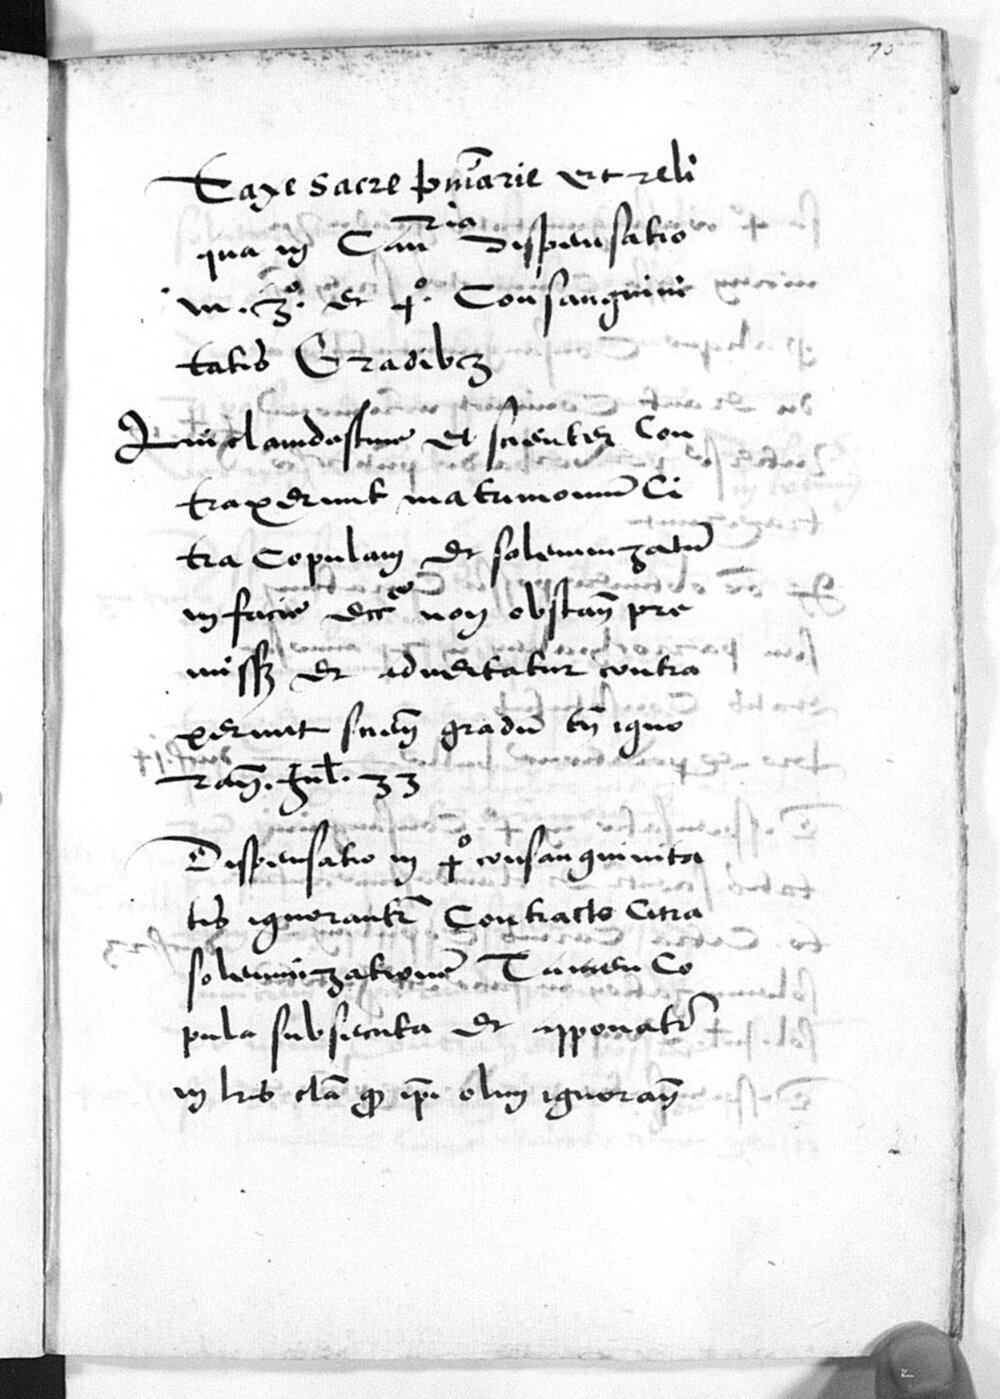 70
Taxe sacre pn̄iarie et reli
qua in Canria Dispensatio
in . 3º. et 4º. Consanguini
tatis Gradibꝫ
Qui clamdestine et scienter Con
traxerunt matrimoniū Ci
tra Copulam et solemnizatū
in facie eccē non obstan̄ pre
missꝫ et advertatur contra
xerunt scien̄ gradū tn̄ igno
ran̄. Jul. 33
Dispensatio in 4º consanguinita
tis ignorantr̄ Contracto Citra
solemnizationē Tamen Co
pula subsecuta et apponatr̄
in lr̄is clā ꝙ ip̄i olim ignoran̄